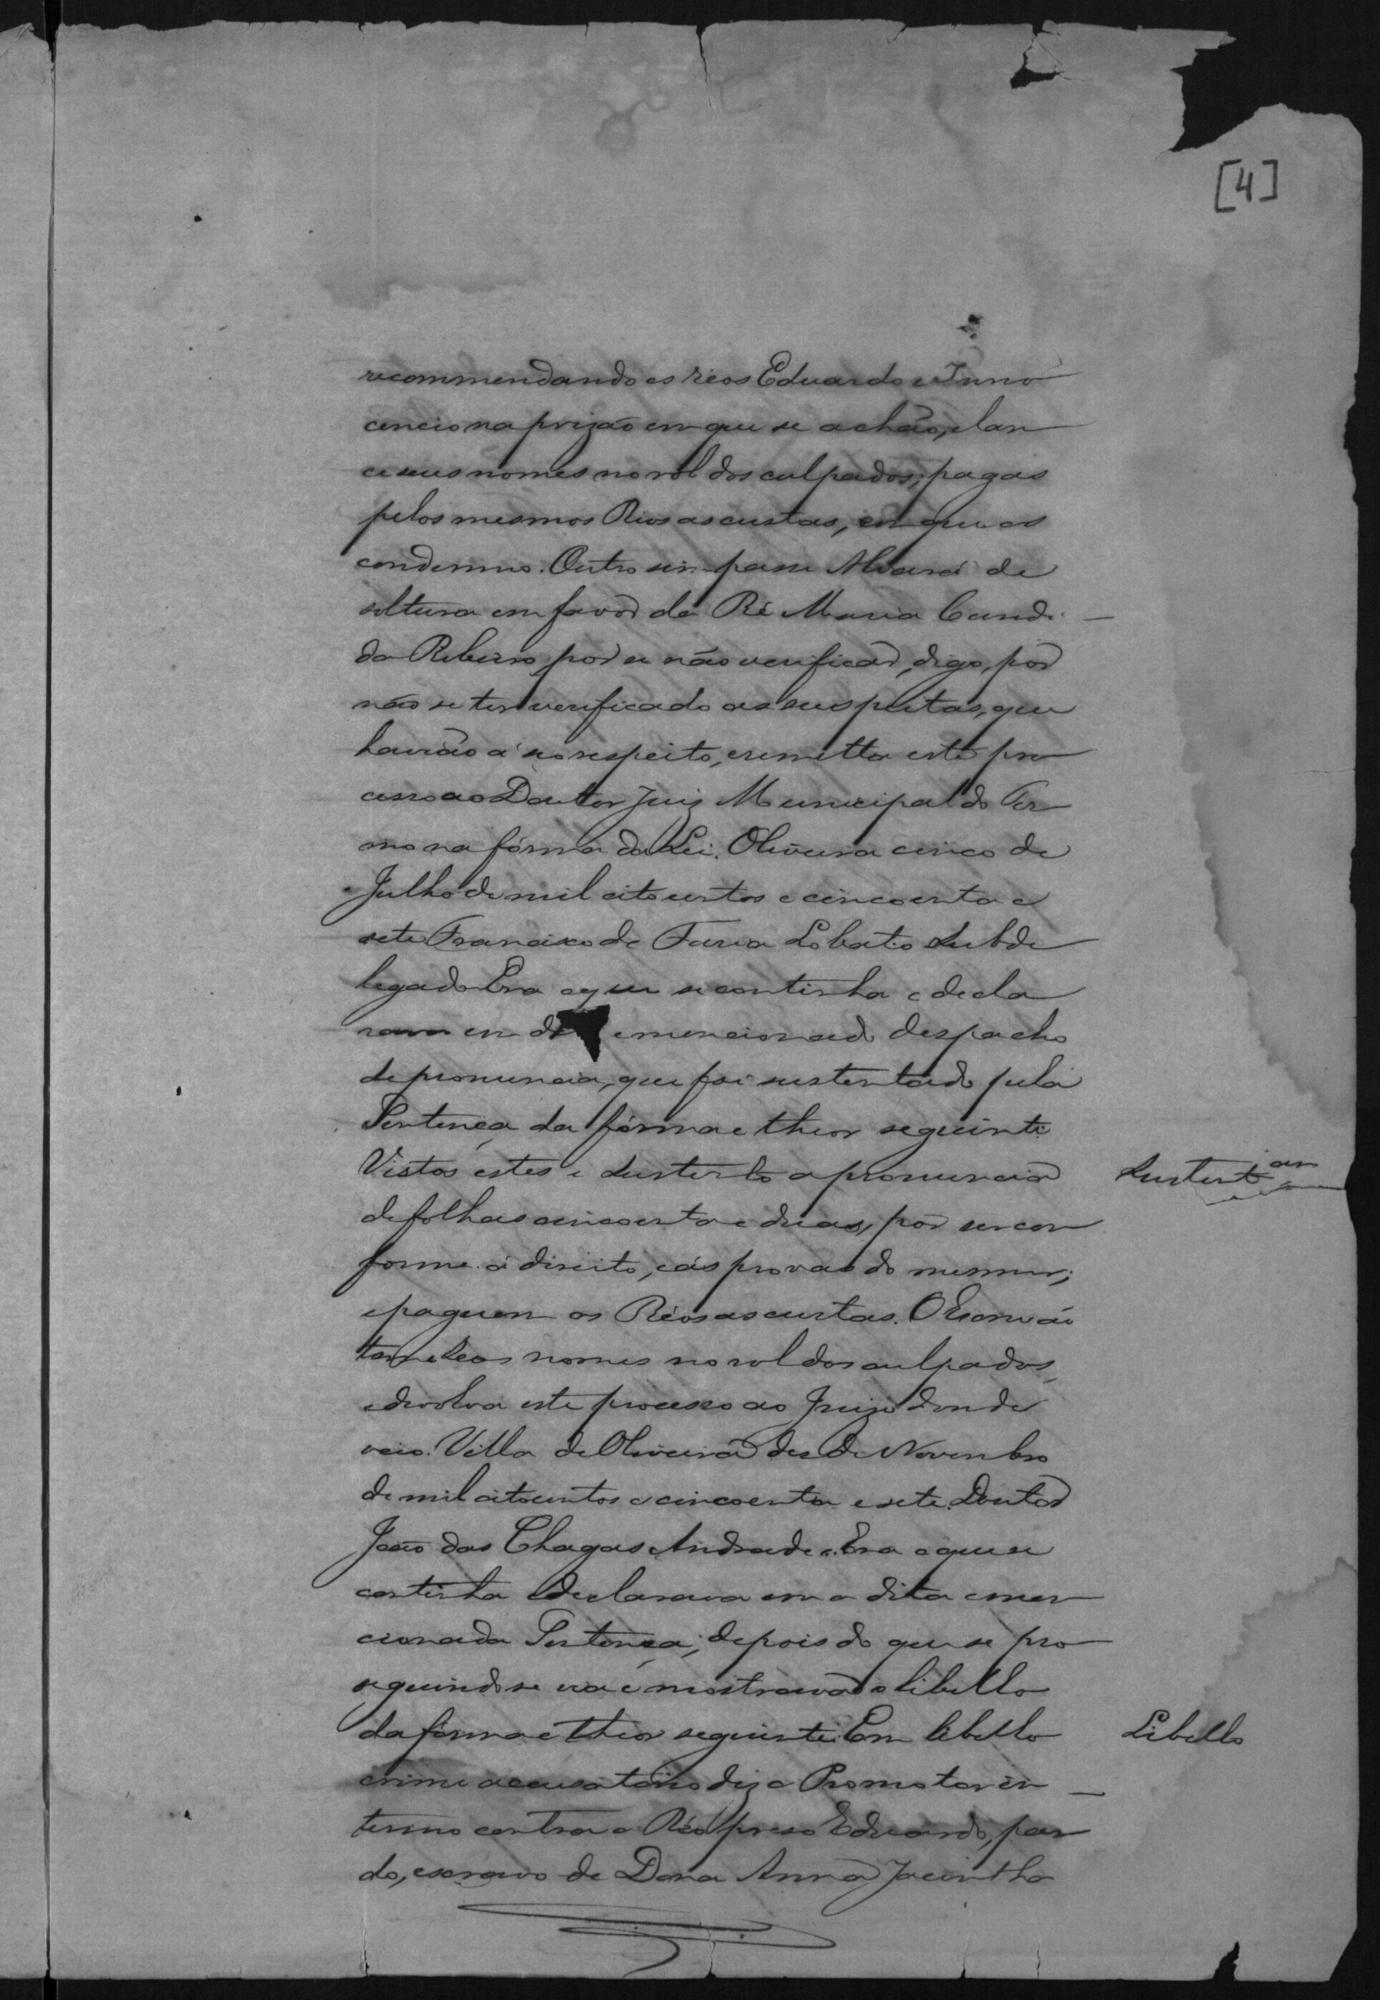 [4]
recommendando os réos Eduardo e Inno
cencio na prizão em que se achão, e lan
ce seus nomes no rol dos culpados; pagas
pelos mesmos Reos as custas, em que os
condemno. Outro sim passe Alvará de
soltura em favor da Ré Maria Candi
da Ribeiro, por se não verificar, digo, por
não se ter verificado as suspeitas, que
havião a seo respeito, e remetta este pro
cesso ao Doutor Juiz Municipal do Ter
mo na fórma da Lei. Oliveira cinco de
Julho de mil oitocentos e cincoenta e
sete Francisco de Faria Lobato Subde
legado Era o que se continha e decla
rava em o emencionado despacho
de pronuncia, que foi sustentado pela
Sentença da fórma e theor seguinte
Vistos estes e sustento a pronuncia
Sustentam
de folhas cincoenta e duas, por ser con
forme á direito, e ás provas do mesmo;
e paguem os Réos as custas. O Escrivão
lance seos nomes no rol dos culpados,
e devolva este processo ao Juizo donde
veio. Villa de Oliveira dez de Novembro
de mil oitocentos e cincoenta e sete. Doutor
João das Chagas Andrade. Era o que se
continha e declarava em a dita e men
cionada Sentença; depois do que se pro
seguindo se via e mostrava o libello
da fórma e theor seguinte: Em libello
Libello
crime accusatorio diz o Promotor in
terino contra o Réo preso Eduardo, par
do, escravo de Dona Anna Jacintha